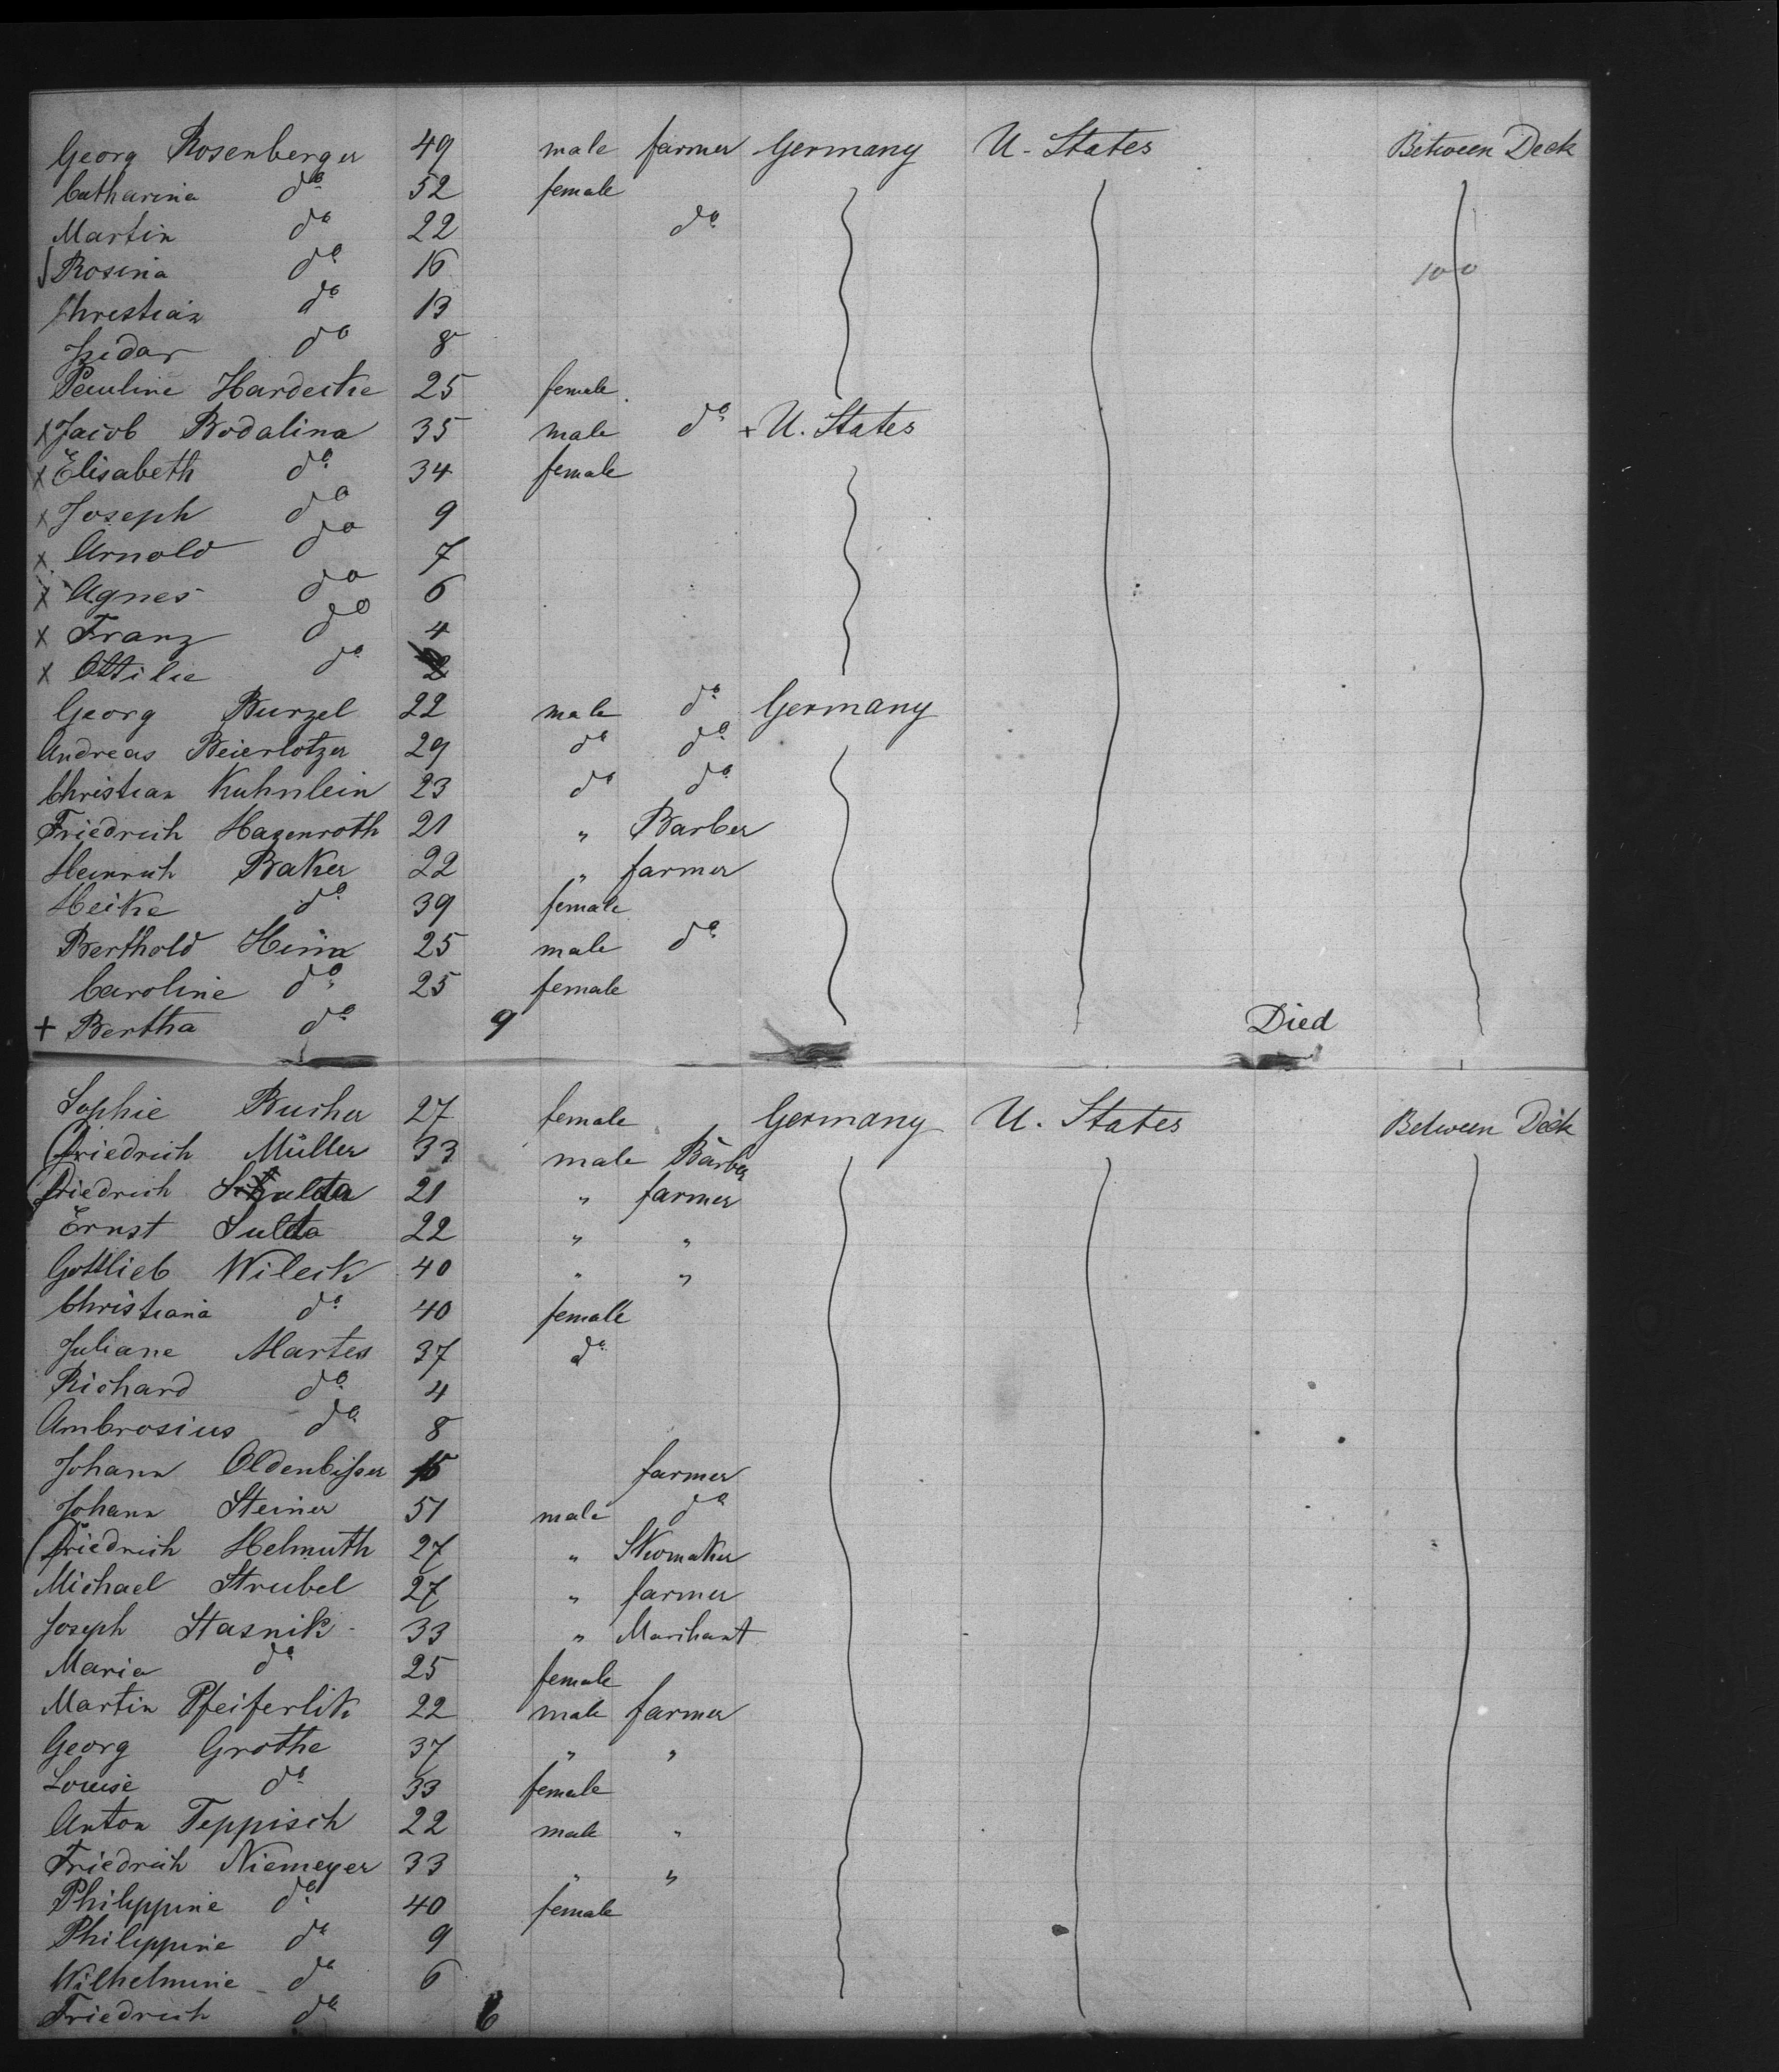 Georg Rosenberger 49 male farmer Germany U. States Between Deck
Catharina do 52 female
Martin do 22 do
Rosina do 16 100
Christian do 13
Isidar do 8
Pauline Hardecke 25 female
x Jacob Bodalina 35 male do + U. States
x Elisabeth do 34 female
x Joseph do 9
x Arnold do 7
x Agnes do 6
x Franz do 4
x Ottilie do 2
Georg Burzel 22 male do Germany
Andreas Beierlotzer 29 do do
Christian Kuhnlein 23 do do
Friedrich Hagenroth 21 " Barber
Heinrich Baker 22 " farmer
Heike do 39 female
Berthold Heim 25 male do
Caroline do 25 female
+ Bertha do 9 Died
Sophie Bucher 27 female Germany U. States Between Deck
Friedrich Müller 33 male Barber
Friedrich 21 " farmer
Ernst Sulda 22 " "
Gottlieb Wileck 40 " "
Christiana do 40 female
Juliane Martes 37 do
Richard do 4
Ambrosius do 8
Johann Oldenbisser 15 farmer
Johann Steiner 51 male do
Friedrich Helmuth 27 " Shomaker
Michael Strubel 27 " farmer
Joseph Stasnik 33 " Marchant
Maria do 25 female
Martin Pfeiferlik 22 male farmer
Georg Grothe 37 " "
Louise do 33 female
Anton Teppisch 22 male "
Friedrich Niemeyer 33 " "
Philippine do 40 female
Philippine do 9
Wilhelmine do 6
Friedrich do 6